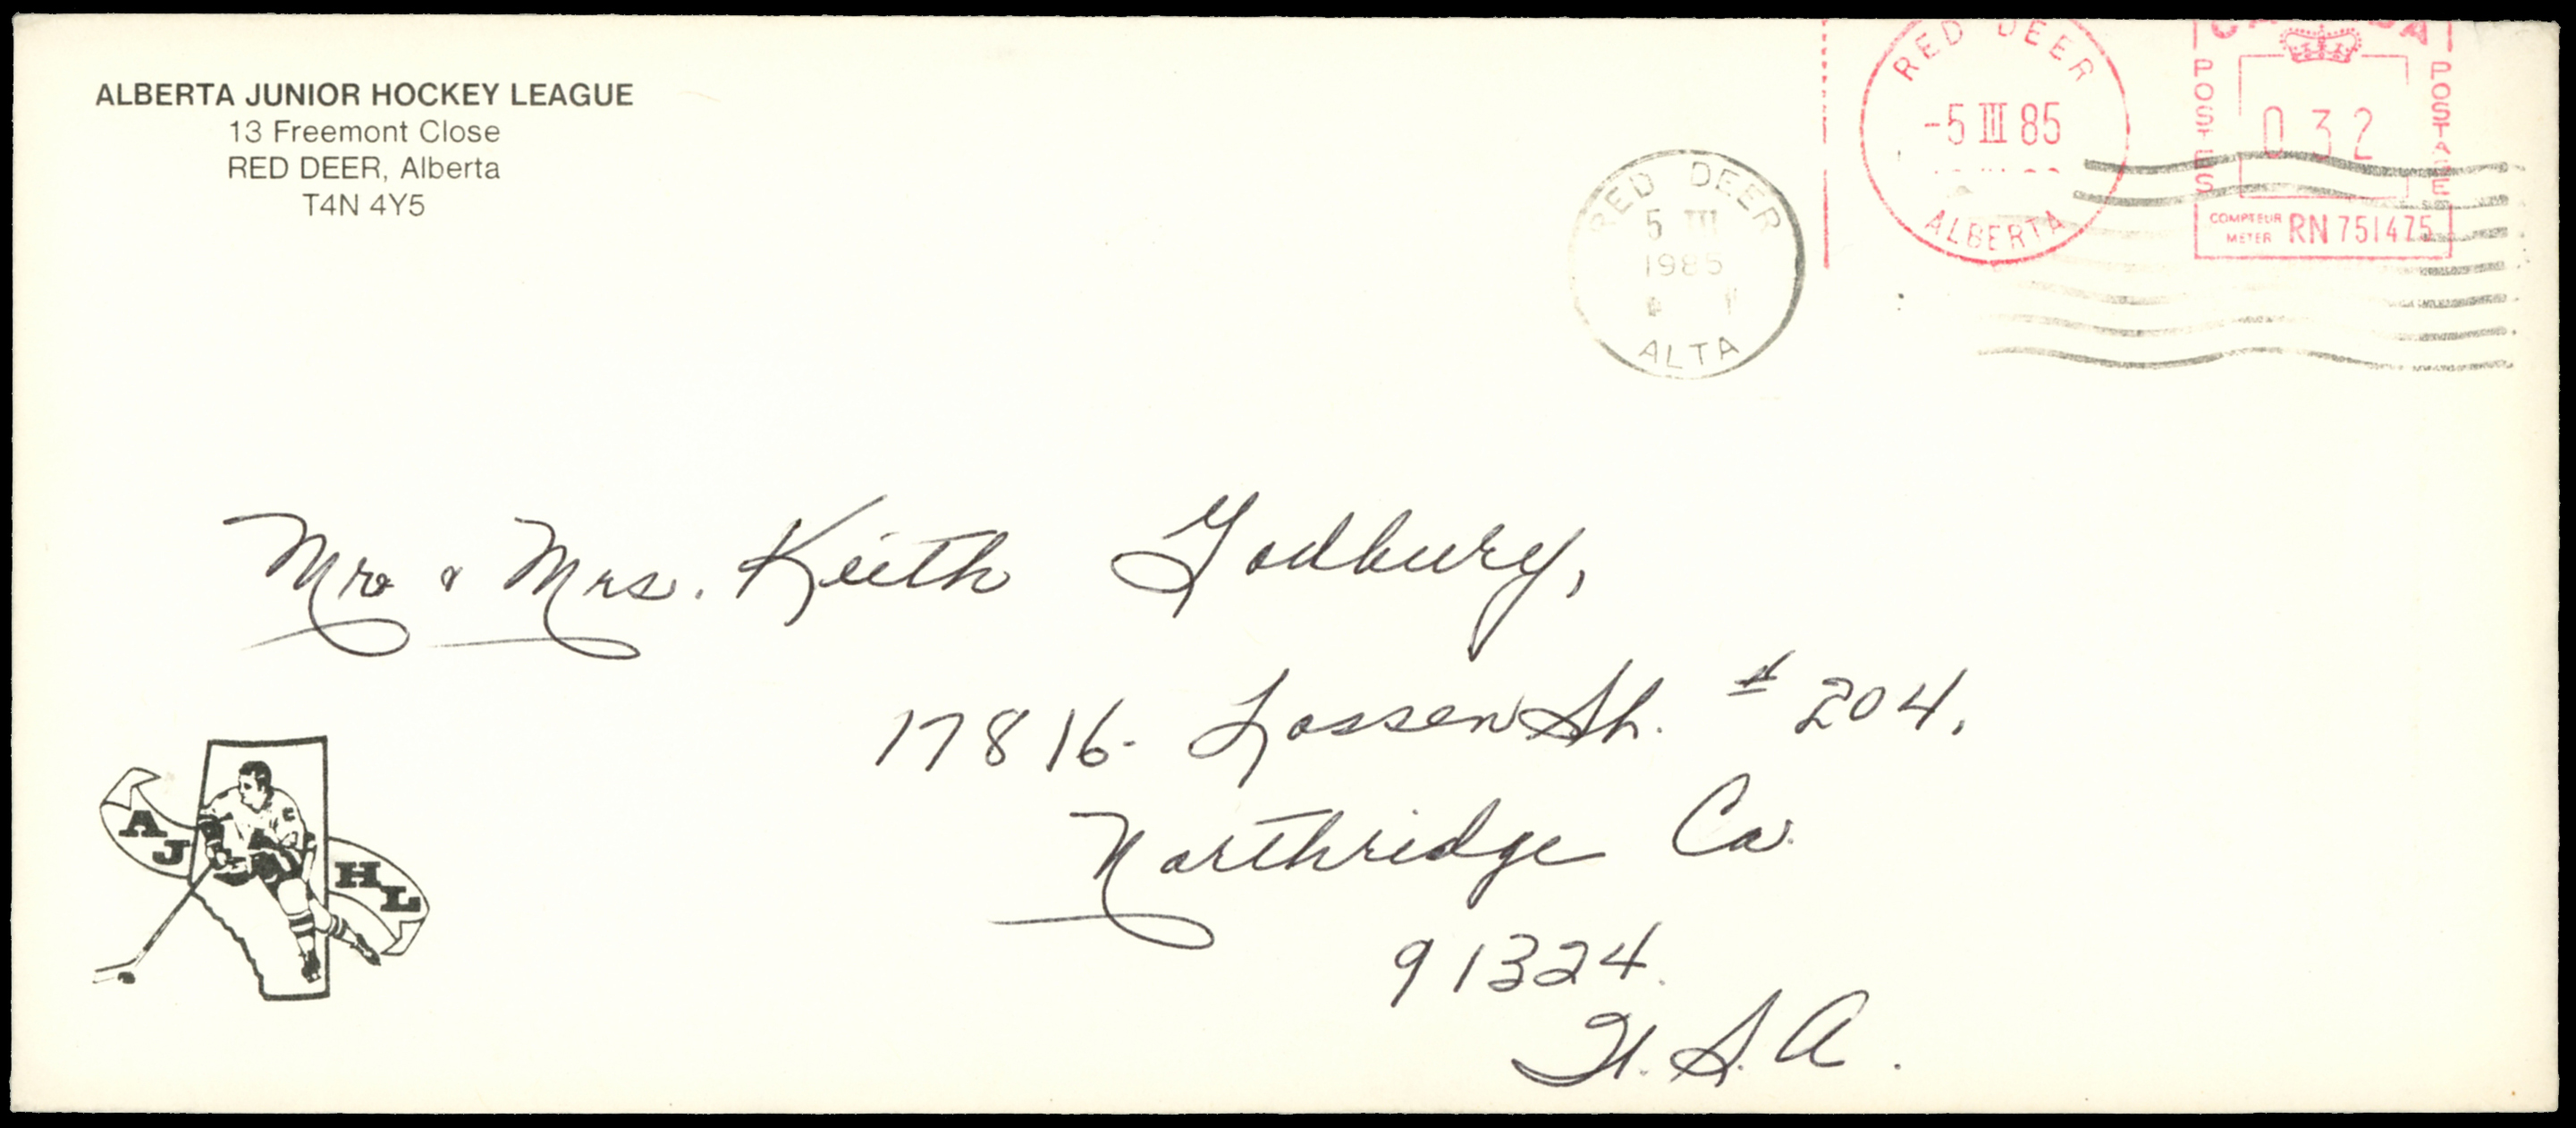 ALBERTA JUNIOR HOCKEY LEAGUE
13 Freemont Close
RED DEER, Alberta
T4N 4Y5
RED DEER
5 III
1985
ALTA
RED DEER
-5 III 85
ALBERTA
CANADA
POSTES
032
POSTAGE
COMPTEUR
METER RN 751475
Mr & Mrs. Keith Godbury,
17816- Lassen St. # 204.
Northridge Ca.
91324.
U.S.A.
A J H L